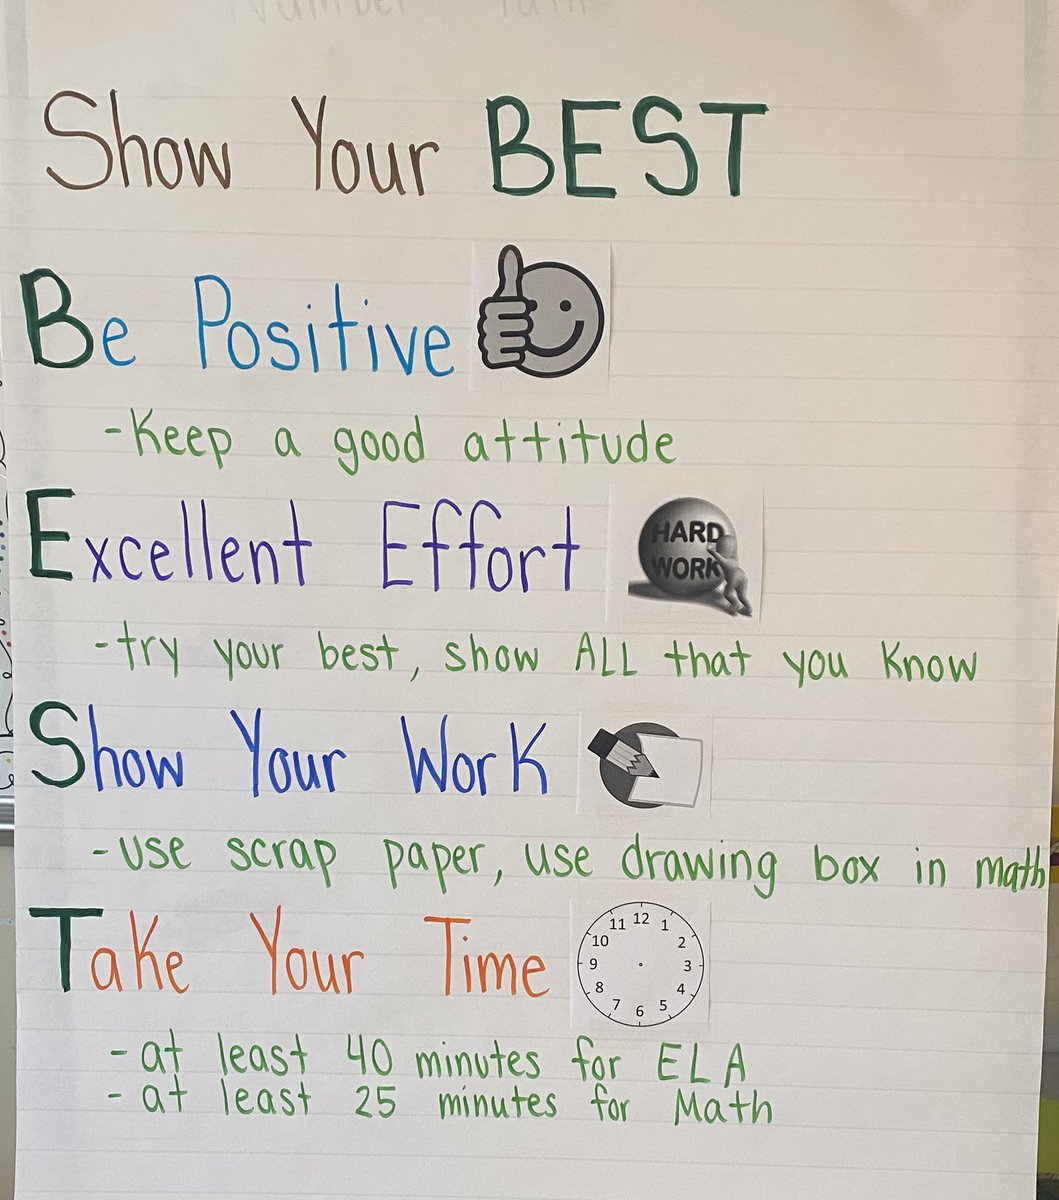 Show Your BEST
Be Positive
-Keep a good attitude
Excellent Effort
HARD
WORK
-try your best, show ALL that you know
Show Your Work
-use scrap paper, use drawing box in math
Take Your Time
11 12 1
10 2
9 3
8 4
7 6 5
-at least 40 minutes for ELA
-at least 25 minutes for Math